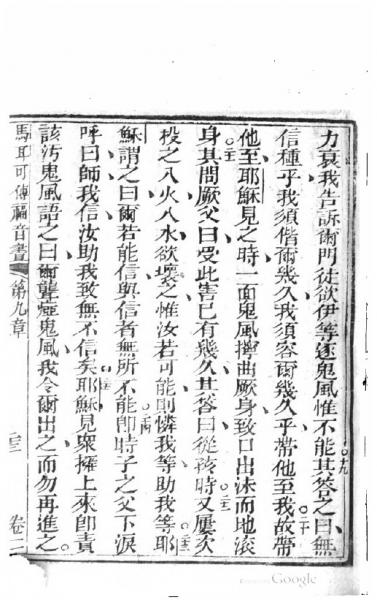 力衰我告訴爾門徒欲伊等逐鬼風惟不能其答之曰無
十九
信種乎我須偕爾幾久我須容爾幾久乎帶他至我故帶
二十
他至耶穌見之時一面鬼風搏曲厥身致口出沫而地滾
二一
身其問厥父曰受此害已有幾久其答曰從孩時又屢次
二二
投之入火入水欲壞之惟汝若可能則憐我等助我等耶
二三
穌謂之曰爾若能信與信者無所不能卽時子之父下淚
二四
呼曰師我信汝助我致無不信矣耶穌見衆擁上來卽責
二五
該汚鬼風語之曰爾聾瘂鬼風我令爾出之而勿再進之
馬耳可傳福音書 第九章 二三 卷二
Google